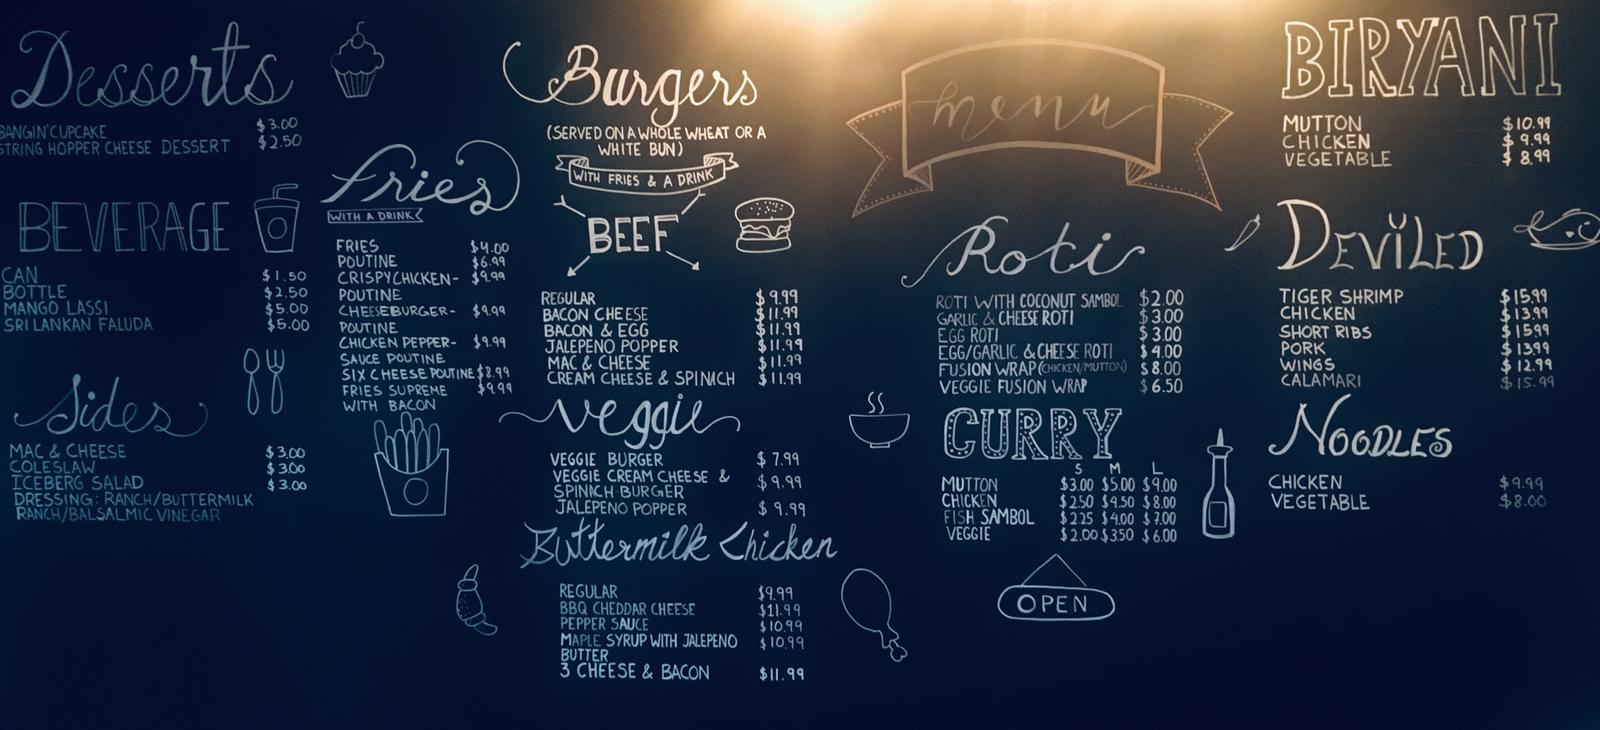 Desserts
BANGIN' CUPCAKE $3.00
STRING HOPPER CHEESE DESSERT $2.50
BEVERAGE
CAN $1.50
BOTTLE $2.50
MANGO LASSI $5.00
SRI LANKAN FALUDA $5.00
Sides
MAC & CHEESE $3.00
COLESLAW $3.00
ICEBERG SALAD $3.00
DRESSING: RANCH/BUTTERMILK
RANCH/BALSALMIC VINEGAR
Fries
WITH A DRINK
FRIES $4.00
POUTINE $6.99
CRISPY CHICKEN- $9.99
POUTINE
CHEESEBURGER- $9.99
POUTINE
CHICKEN PEPPER- $9.99
SAUCE POUTINE
SIX CHEESE POUTINE $8.99
FRIES SUPREME $9.99
WITH BACON
Burgers
(SERVED ON A WHOLE WHEAT OR A
WHITE BUN)
WITH FRIES & A DRINK
BEEF
REGULAR $9.99
BACON CHEESE $11.99
BACON & EGG $11.99
JALEPENO POPPER $11.99
MAC & CHEESE $11.99
CREAM CHEESE & SPINACH $11.99
Veggie
VEGGIE BURGER $7.99
VEGGIE CREAM CHEESE & $9.99
SPINACH BURGER
JALEPENO POPPER $9.99
Buttermilk Chicken
REGULAR $9.99
BBQ CHEDDAR CHEESE $11.99
PEPPER SAUCE $10.99
MAPLE SYRUP WITH JALEPENO $10.99
BUTTER
3 CHEESE & BACON $11.99
menu
Roti
ROTI WITH COCONUT SAMBOL $2.00
GARLIC & CHEESE ROTI $3.00
EGG ROTI $3.00
EGG/GARLIC & CHEESE ROTI $4.00
FUSION WRAP (CHICKEN/MUTTON) $8.00
VEGGIE FUSION WRAP $6.50
CURRY
S M L
MUTTON $3.00 $5.00 $9.00
CHICKEN $2.50 $4.50 $8.00
FISH SAMBOL $2.25 $4.00 $7.00
VEGGIE $2.00 $3.50 $6.00
OPEN
BIRYANI
MUTTON $10.99
CHICKEN $9.99
VEGETABLE $8.99
DEViLED
TIGER SHRIMP $15.99
CHICKEN $13.99
SHORT RIBS $15.99
PORK $13.99
WINGS $12.99
CALAMARI $15.99
NOODLES
CHICKEN $9.99
VEGETABLE $8.00